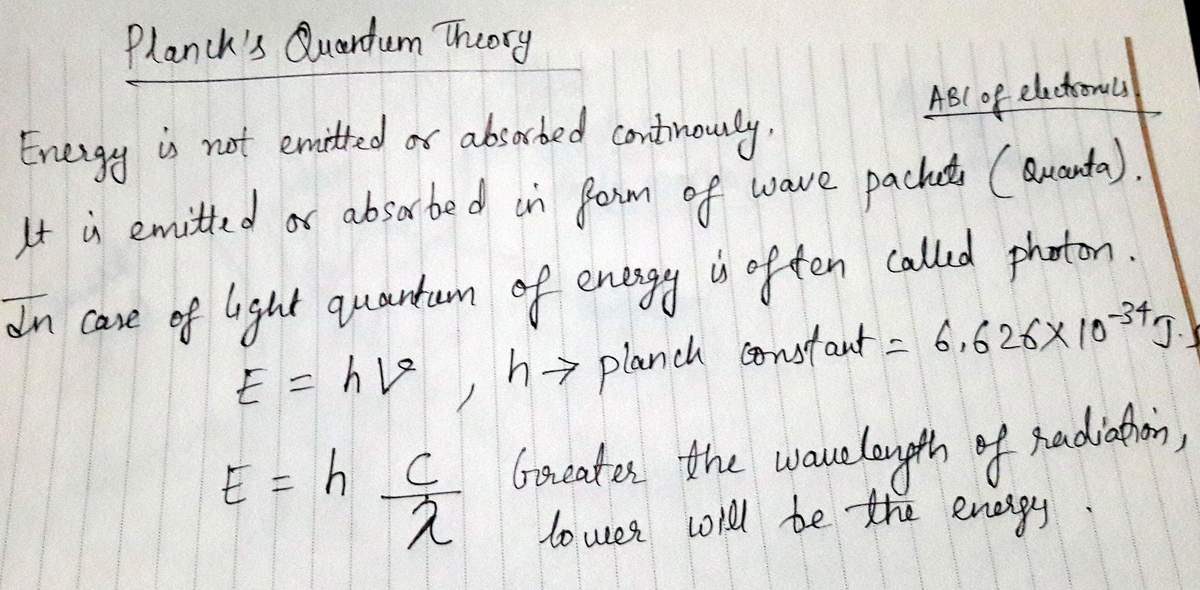 Planck's Quantum Theory
ABC of electronics
Energy is not emitted or absorbed continously.
It is emitted or absorbed in form of wave packets (Quanta).
In case of light quantum of energy is often called photon.
E = hν, h → planck constant = 6.626×10⁻³⁴ J.s
E = h c/λ Greater the wavelength of radiation,
lower will be the energy.